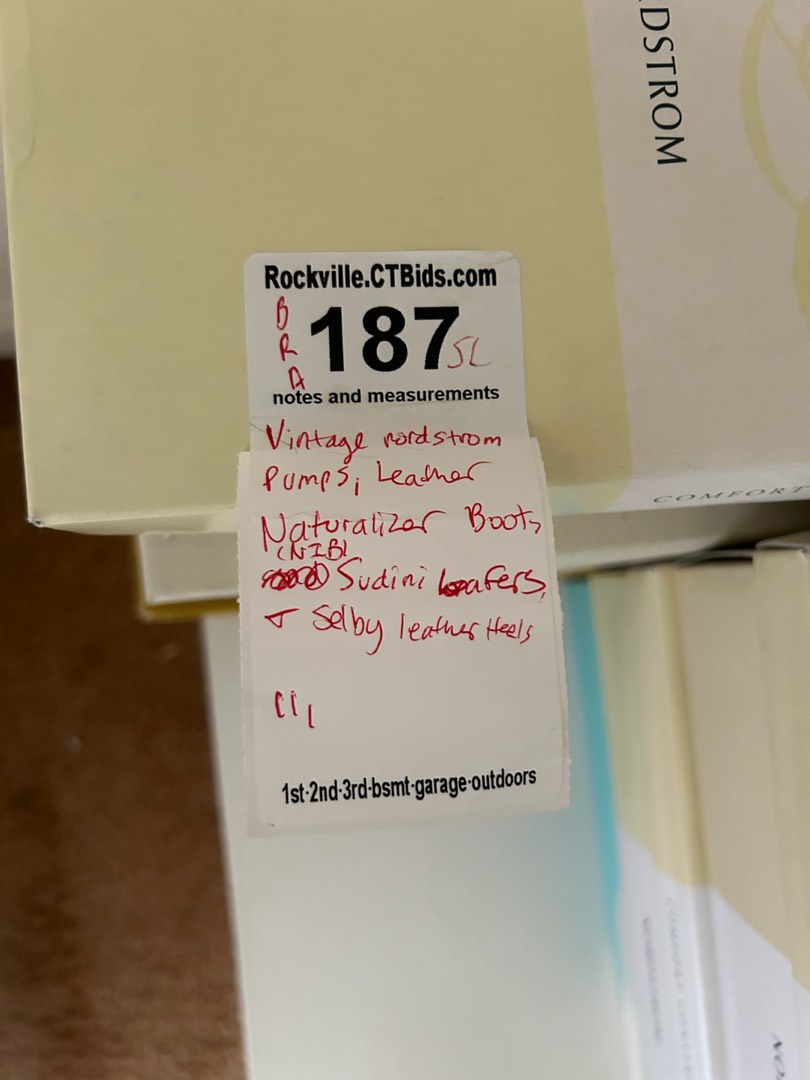 DSTROM
Rockville.CTBids.com
BRA
187 SL
notes and measurements
Vintage nordstrom
Pumps, Leather
Naturalizer Boots
(NIB)
Sudini Loafers,
+ Selby leather Heels
1st·2nd·3rd·bsmt·garage·outdoors
COMFORT
NO